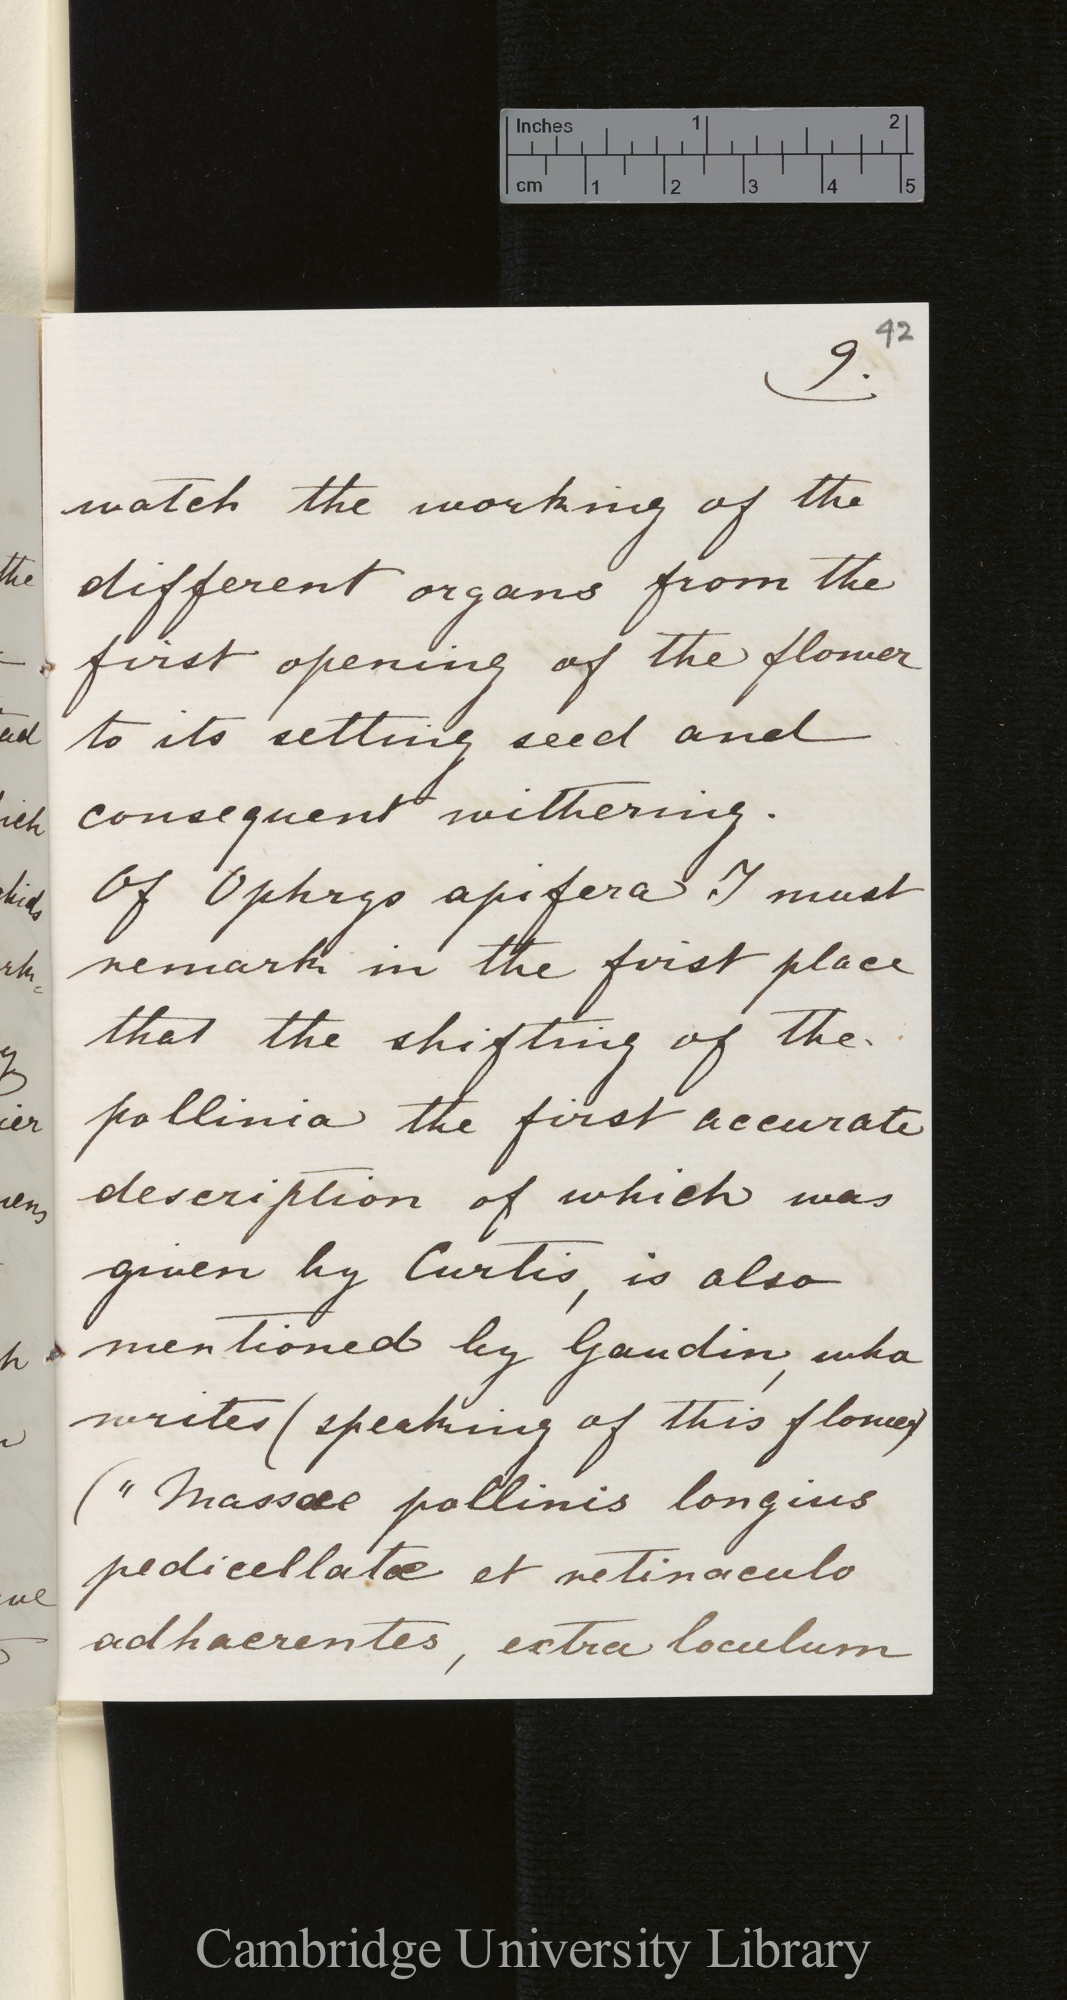 Inches 1 2
cm 1 2 3 4 5
42
9.
watch the working of the
different organs from the
first opening of the flower
to its setting seed and
consequent withering.
Of Ophrys apifera I must
remark in the first place
that the shifting of the
pollinia the first accurate
description of which was
given by Curtis, is also
mentioned by Gaudin, who
writes (speaking of this flower)
("Massae pollinis longius
pedicellatæ et retinaculo
adhaerentes, extra loculum
the
ier
Cambridge University Library